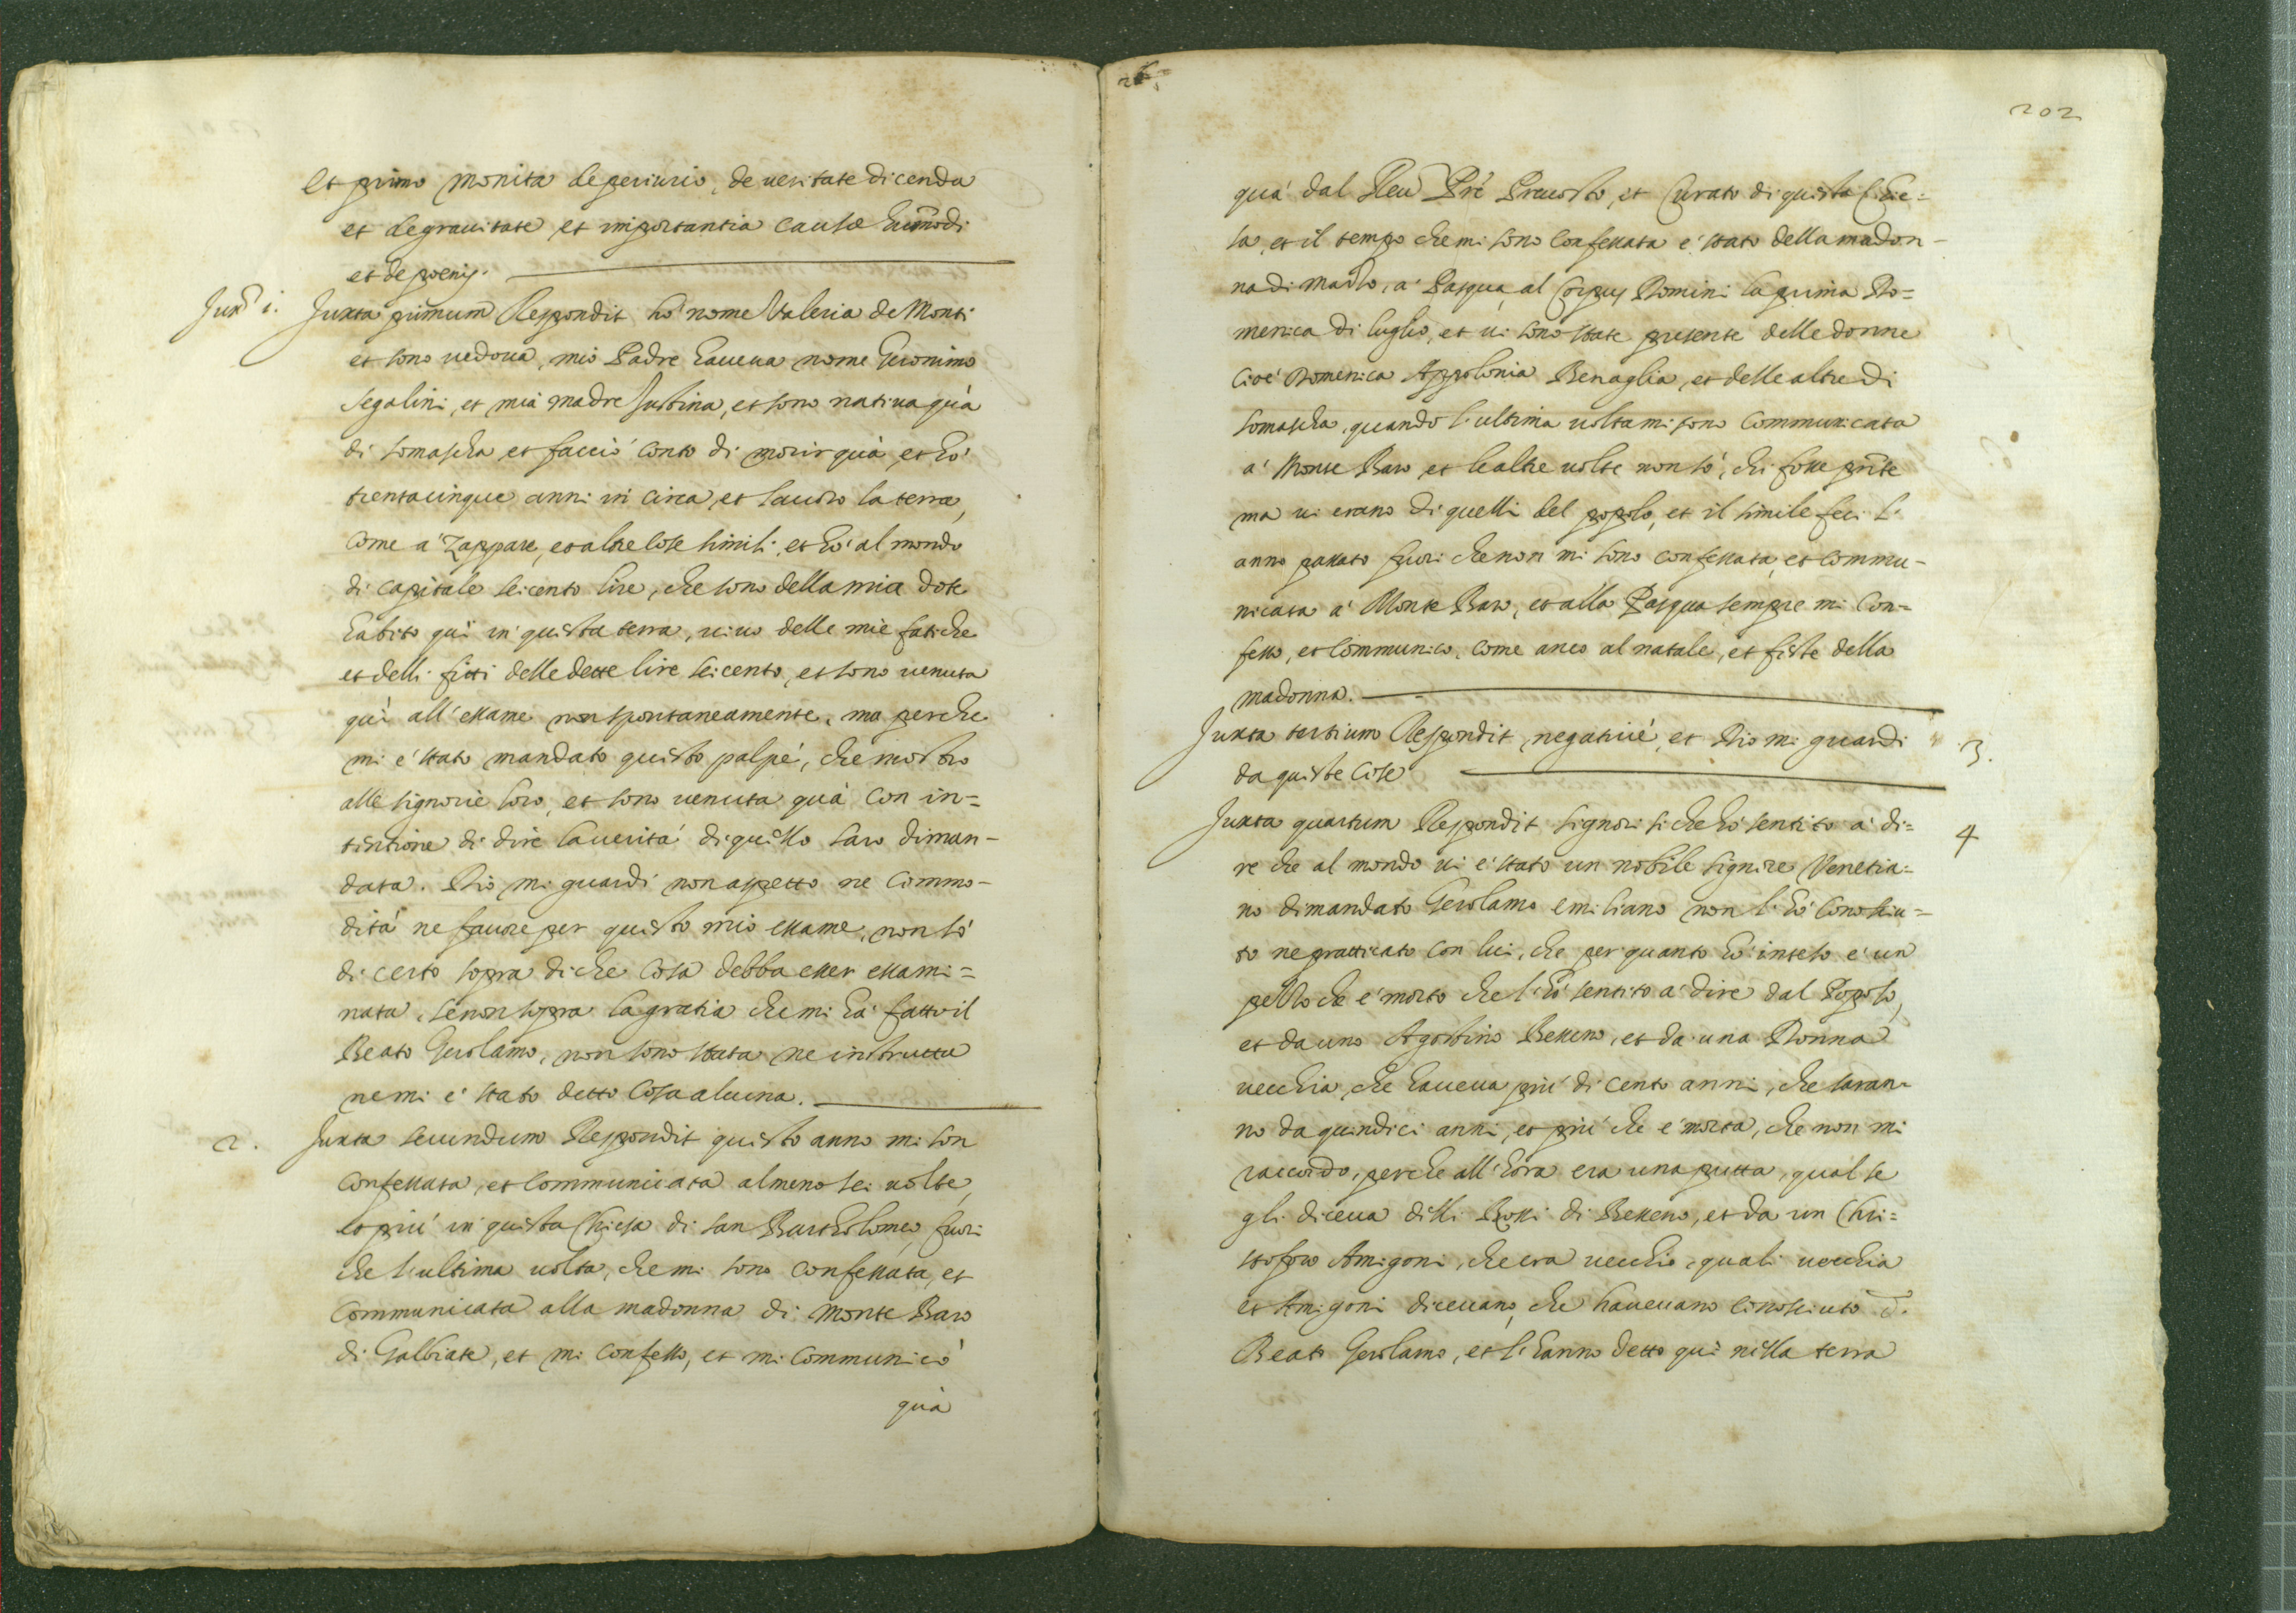 Et primo monita de periurio, de ueritate dicenda
et de grauitate et importantia causæ huiusmodi
et de poenis.
Juxᵃ i. Juxta primum Respondit hò nome Valeria de Monti
et sono uedoua, mio Padre haueua nome Geronimo
Segalini, et mia madre Justina, et sono natiua quà
di somascha et faccio conto di morir quà, et hò
trentacinque anni in circa, et lauoro la terra,
come a' Zappare, et altre cose simili, et hò al mondo
di capitale seicento lire, che sono della mia dote
habito quì in questa terra, uiuo delle mie fatiche
et delli fitti delle dette lire seicento, et sono uenuta
quì all'essame non spontaneamente, ma perche
mi è stato mandato questo palpè, che mostro
alle signorie loro, et sono uenuta quà con in=
tentione di dire la uerità di quello sarò diman-
data. Dio mi guardi non aspetto ne commo-
dità ne fauore per questo mio essame, non sò
di certo sopra di che cosa debba esser essami=
nata, se non sopra la gratia che mi hà fatto il
Beato Gerolamo, non sono stata ne instrutta
ne mi è stato detto cosa alcuna.
2. Juxta secundum Respondit questo anno mi son
confessata, et communicata almeno sei uolte,
et più in questa Chiesa di san Bartholomeo, fuori
che l'ultima uolta, che mi sono confessata, et
communicata alla madonna di Monte Baro
di Galbiate, et mi confesso, et mi communicò
quà
26
202
quà dal Reu Prè Preuosto, et Curato di questa Chie=
sa, et il tempo che mi sono confessata è stato della madon-
na di Marzo, a' Pasqua, al Corpus Domini la prima Do=
menica di luglio, et ui sono state presente delle donne
cioè Domenica Appolonia Benaglia, et delle altre di
somascha, quando l'ultima uolta mi sono communicata
a' Monte Baro et le altre uolte non sò, chi fosse prñte
ma ui erano di quelli del popolo, et il simile feci l'
anno passato fuori che non mi sono confessata, et commu-
nicata a' Monte Baro, et alla Pasqua sempre mi con=
fesso, et communico, come anco al natale, et feste della
madonna.
Juxta tertium Respondit, negatiuè, et Dio mi guardi 3.
da queste cose
Juxta quartum Respondit signori si che hò sentito a' di= 4
re che al mondo ui è stato un nobile signore Venetia=
no dimandato Gerolamo emiliano non l'hò conosciu=
to ne pratticato con lui, che per quanto hò inteso è un
pezzo che è morto che l'hò sentito a' dire dal Popolo,
et da uno Agostino Besseno, et da una Donna
uecchia, che haueua più di cento anni, che saran-
no da quindici anni, et più che è morta, che non mi
raccordo, perche all'hora era una putta, qual se
gli diceua delli Rossi di Besseno, et da un Chri=
stoforo Amigoni, che era uecchio, quali uecchia
et Amigoni diceuano, che haueuano conosciuto d.
Beato Gerolamo, et l'hanno detto quì nella terra